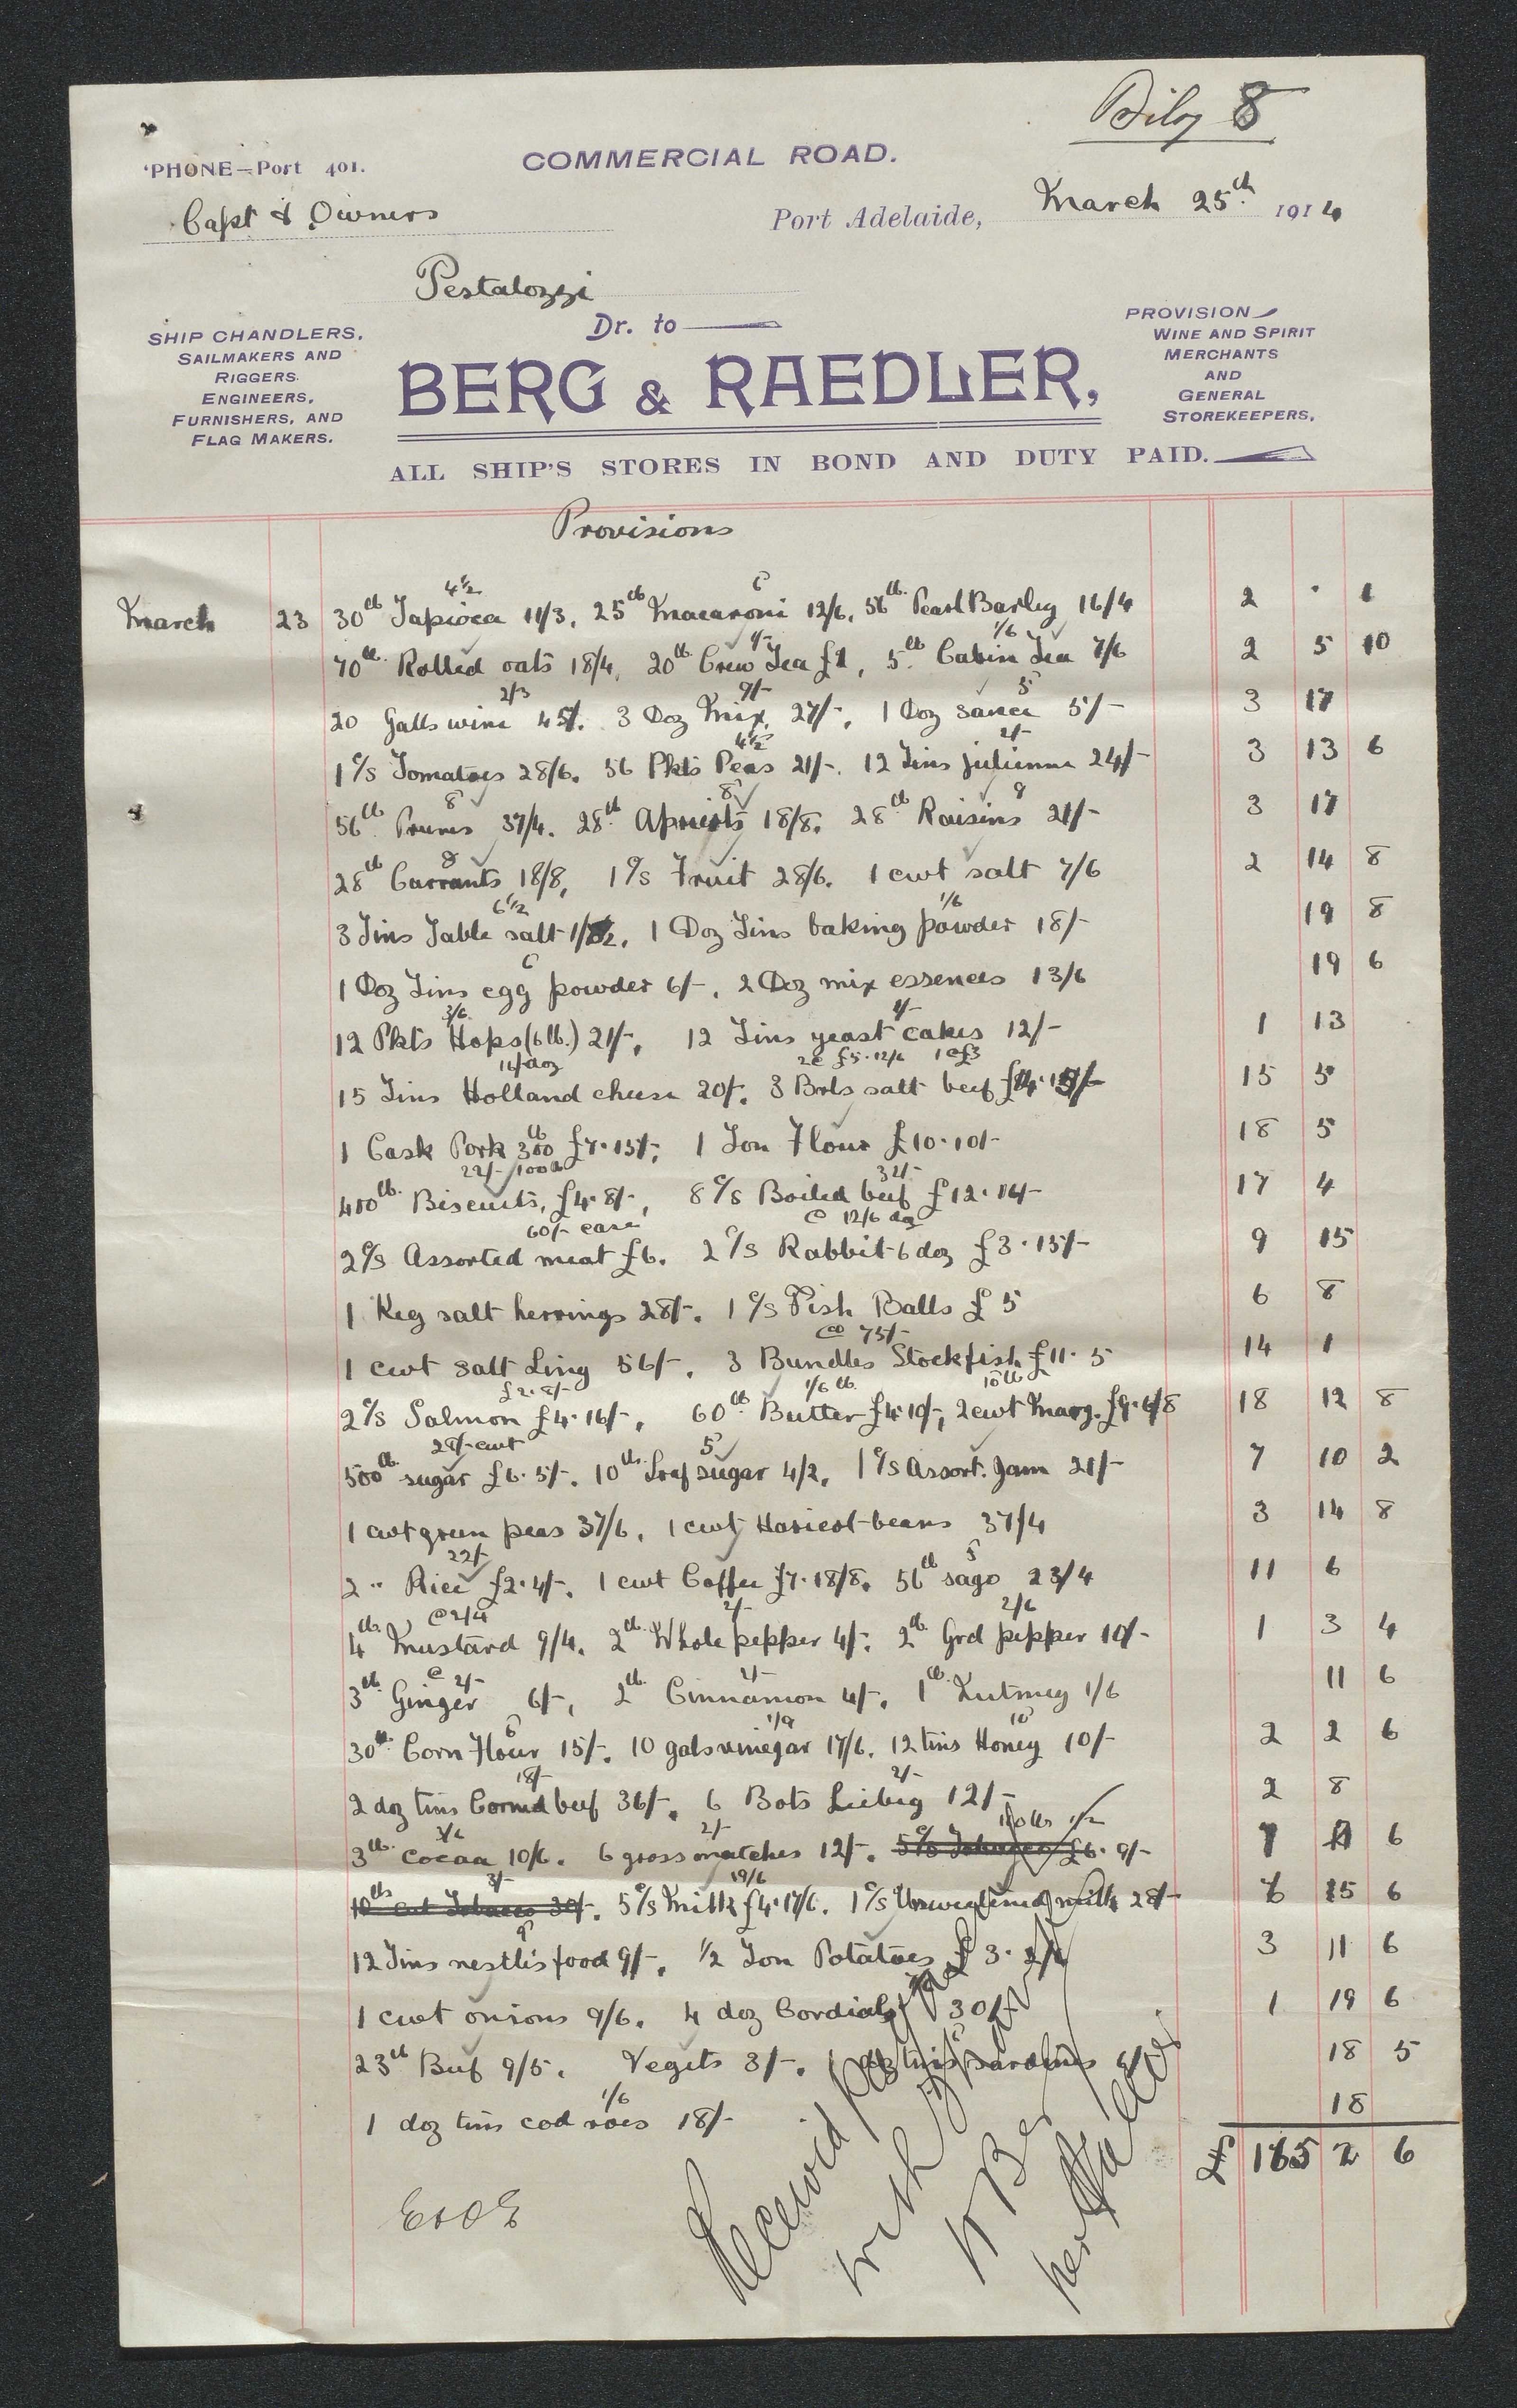 Bilag 8
'PHONE–Port 401.
COMMERCIAL ROAD.
Capt & Owners
Port Adelaide, March 25th 1914
Pestalozzi
Dr. to
SHIP CHANDLERS,
SAILMAKERS AND
RIGGERS.
ENGINEERS,
FURNISHERS, AND
FLAG MAKERS.
BERG & RAEDLER,
PROVISION
WINE AND SPIRIT
MERCHANTS
AND
GENERAL
STOREKEEPERS.
ALL SHIP'S STORES IN BOND AND DUTY PAID.
Provisions
4½ 6
March 23 30lb Tapioca 11/3. 25lb Macaroni 12/6. 56lb Pearl Barley 16/4 2 · 1
1/- 1/6
70lb Rolled oats 18/4, 20lb Crew Tea £1, 5lb Cabin Tea 7/6 2 5 10
2/3 9/- 5
20 Galls wine 45/-. 3 Doz Mix. 27/-. 1 Doz sauce 5/- 3 17
4½ 2/-
1 c/s Tomatoes 28/6. 56 Pkts Peas 21/-. 12 Tins julienne 24/- 3 13 6
8 8 9
56lb Prunes 37/4. 28lb Apricots 18/8. 28lb Raisins 21/- 3 17
8
28lb Currants 18/8, 1 c/s Fruit 28/6. 1 cwt salt 7/6 2 14 8
6½ 1/6
3 Tins Table salt 1/ , 1 Doz Tins baking powder 18/- 19 8
6
1 Doz Tins egg powder 6/-. 2 Doz mix essences 13/6 19 6
3/6 1/-
12 Pkts Hops (6 lb.) 21/-, 12 Tins yeast cakes 12/- 1 13
16/- doz 2 @ £5.12/6 1 @ £3
15 Tins Holland cheese 20/-. 3 Brls salt beef £14. 5/- 15 5
1 Cask Pork 300lb £7.15/-; 1 Ton Flour £10.10/- 18 5
22/- 100lb 32/-
400lb Biscuits, £4.8/-, 8 c/s Boiled beef £12.16/- 17 4
60/- case @ 12/6 doz
2 c/s Assorted meat £6. 2 c/s Rabbit 6 doz £3.15/- 9 15
1 Keg salt herrings 28/-. 1 c/s Fish Balls £5 6 8
@ 75/-
1 cwt salt Ling 56/-. 3 Bundles Stockfish £11.5 14 1
£2.8/- 1/6 lb. 10 lb
2 c/s Salmon £4.16/-, 60lb Butter £4.10/-, 2 cwt Marg. £9.6/8 18 12 8
28/- cwt 5
500lb sugar £6.5/-. 10lb Loaf sugar 4/2, 1 c/s Assort. Jam 21/- 7 10 2
1 cwt green peas 37/6, 1 cwt Haricot beans 37/4 3 14 8
22/- 5
2 " Rice £2.4/-. 1 cwt Coffee £7.18/8. 56lb sago 23/4 11 6
@ 2/4 2/- 2/6
4lb Mustard 9/4. 2lb Whole pepper 4/-; 2lb Grd pepper 10/- 1 3 4
@ 2/- 2/-
3lb Ginger 6/-, 2lb Cinnamon 4/-. 1lb Nutmeg 1/6 11 6
6 1/9 10
30lb Corn Flour 15/-. 10 gals vinegar 17/6. 12 tins Honey 10/- 2 2 6
18/- 2/-
2 doz tins Corned beef 36/-. 6 Bots Liebig 12/- 2 8
3/6 2/- 110 lbs 1/2
3lb Cocoa 10/6. 6 gross matches 12/-. 5 c/s Tobacco £6.9/- 6
3/- 19/6
10lb cut Tobacco 30/-. 5 c/s Milk £4.17/6. 1 c/s Unsweetened milk 28/- 6 15 6
9
12 Tins nestle's food 9/-. ½ Ton Potatoes £3.2/6 3 11 6
1 cwt onions 9/6. 4 doz Cordials 30/- 1 19 6
23lb Beef 9/5. Vegets 3/-. 1 doz tins sardines 6/- 18 5
1/6
1 doz tins cod roes 18/- 18
£ 185 2 6
E&OE
Received payment
with thanks
p B & R
per